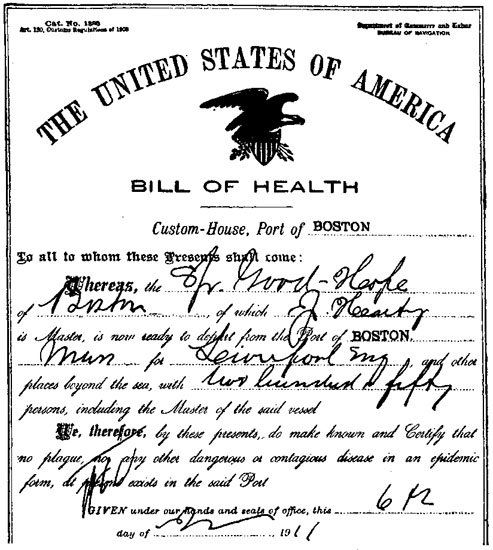 Cat. No. 1888
Art. 130, Customs Regulations of 1908
Department of Commerce and Labor
BUREAU OF NAVIGATION
THE UNITED STATES OF AMERICA
BILL OF HEALTH
Custom-House, Port of BOSTON
To all to whom these Presents shall come:
Whereas, the Str. Good-Hope
of Boston, of which J Hearty
is Master, is now ready to depart from the Port of BOSTON,
Mass for Liverpool Eng, and other
places beyond the sea, with two hundred & fifty
persons, including the Master of the said vessel
We, therefore, by these presents, do make known and Certify that
no plague, nor any other dangerous or contagious disease in an epidemic
form, at present exists in the said Port
GIVEN under our hands and seals of office, this 6 th
day of 1911